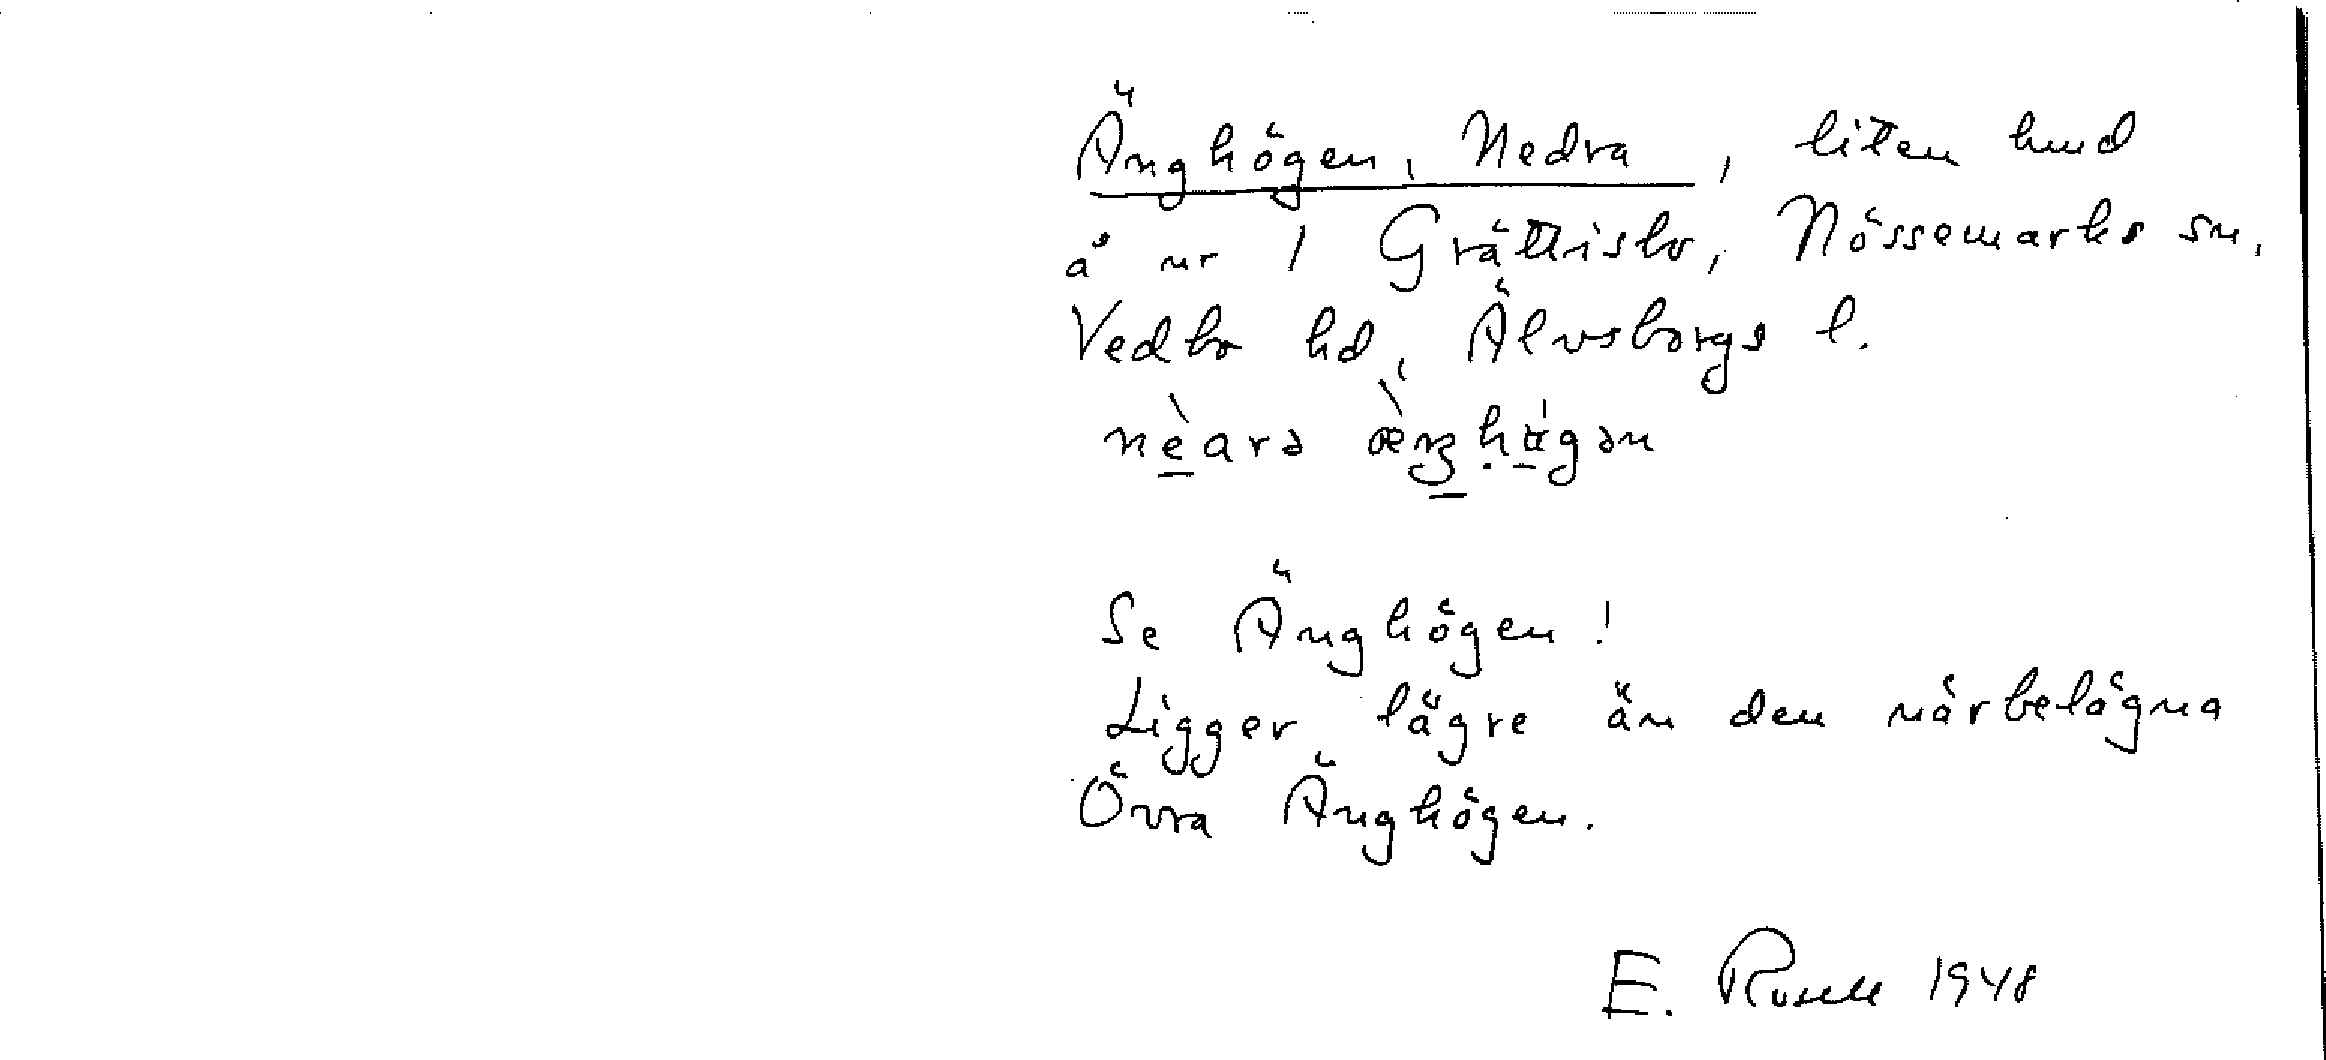 Änghögen, Nedra, liten hmd
å nr 1 Grättisbo, Nössemarks sn,
Vedbo hd, Älvsborgs l.
Se Änghögen!
Ligger lägre än den närbelägna
Övra Änghögen.
E. Rosell 1948